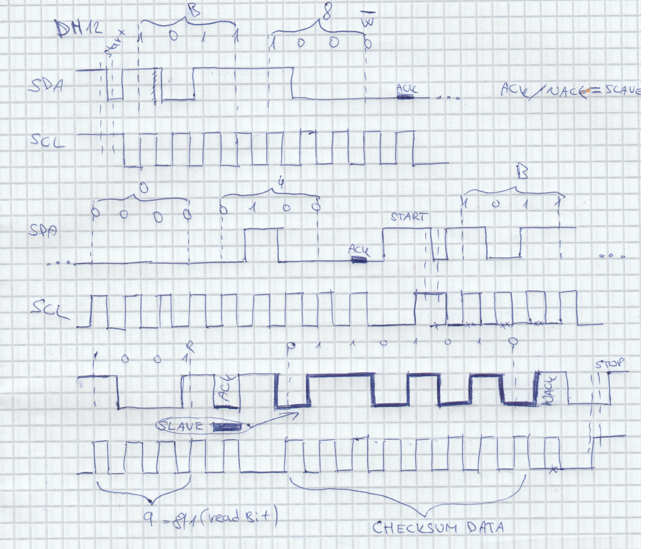 DH12 Start B 8 W
1 0 1 1 1 0 0 0
SDA ACK ... ACK/NACK=SLAVE
SCL
0 4 B
0 0 0 0 0 1 0 0 START 1 0 1 1
SDA ... ACK ...
SCL
1 0 0 1 R 0 1 1 0 1 0 1 0 STOP
ACK NACK
SLAVE
9 = 8+1 (read Bit) CHECKSUM DATA